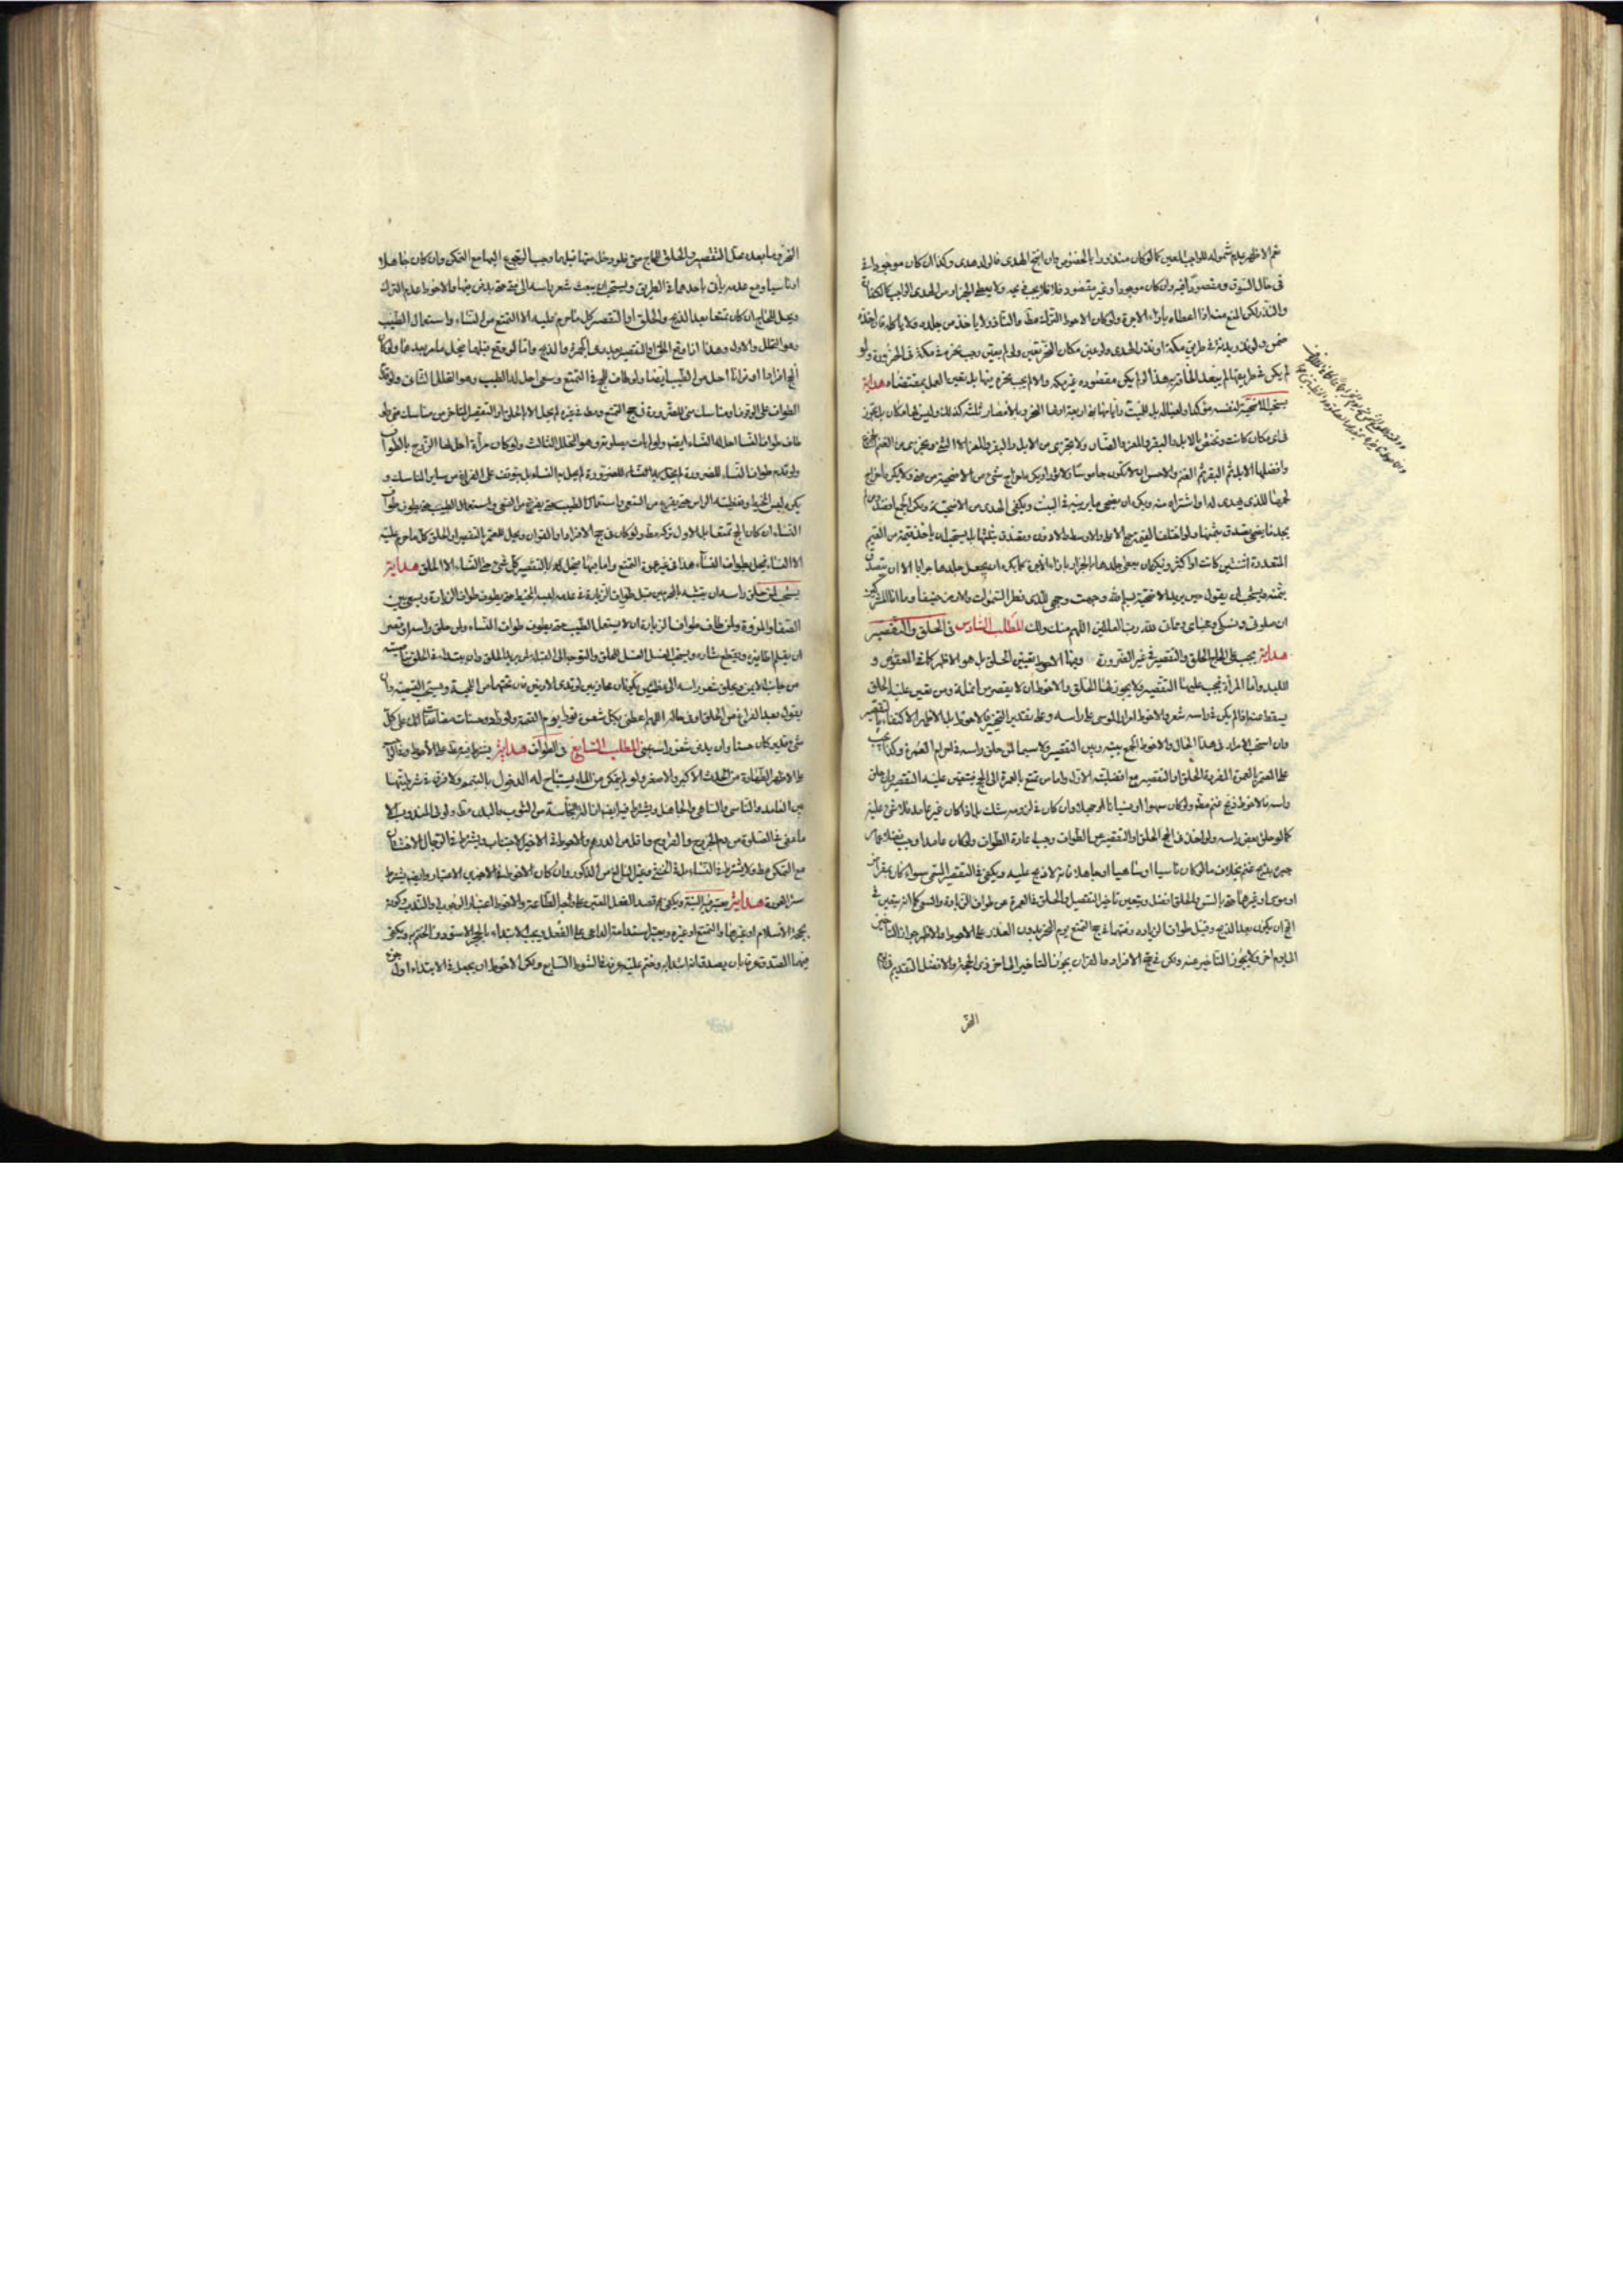 نعم الاظهر عدم شموله للواجب المعين كما لو كان منذورا بالخصوص وان انتج الهدى فالولد هدى وكذا ان كان موجودا
فى حال السوق ومقصودا وان كان موجودا وغير مقصود فلا يجب ولا يعطى الجزار من الهدى الواجب كالكفارات
والنذر لكن المنع منه اذا اعطاه بازاء الاجرة وان كان الاحوط الترك مطلقا ولا ياخذ من جلده ولا ياكله فان اخذه
ضمن ولو نذر بدنة فى طريق مكة او نذر الهدى ولو عين مكان النحر تعين ولو لم يعين وجب نحره فى مكة فى الحزورة ولو
هذا لو لم يكن مقصوده غير مكة والا لم يجب نحره فيها بل تعين العمل بمقتضاه هداية
يستحب الاضحية لنفسه مؤكدا ولعياله بل للميت وايامها بمنى اربعة اولها النحر وبالامصار ثلثة كذلك
فى اى مكان كانت وتختص بالابل والبقر والمعز والضان ولا يجزى من الابل والبقر والمعز الا الثنى ويجزى من الغنم الجذع
وافضلها الابل ثم البقر ثم الغنم والاحسن ان لا تكون جاموسا ولا ثورا ويكره اخراج شئ من الاضحية من منى ولا يكره اخراج
لحمها للذى يهدى له او اشتراه منه ويكره ان يضحى ما يربيه فى البيت ويكفى الهدى من الاضحية ولكن الجمع افضل ومن لم
يجد ما يضحى تصدق بثمنها ولو اختلف القيم جمع الاعلى والاوسط والادون وتصدق بثلثها بل يستحب ان ياخذ قيمة من القيم
المتعددة اثنتين كانت او اكثر ويكره ان يعطى جلدها الجزار بازاء الاجرة كما يكره ان يجعل جلدها جرابا الا ان يتصدق
بثمنه ويستحب ان يقول حين يريد الاضحية بسم الله وجهت وجهى للذى فطر السموات والارض حنيفا وما انا من المشركين
ان صلوتى ونسكى ومحياى ومماتى لله رب العالمين اللهم منك ولك المطلب السادس فى الحلق والتقصير
هداية يجب على الحاج الحلق والتقصير فى غير الضرورة وفيها الاحوط تعيين الحلق بل هو الاظهر كما فى المعقوص و
الملبد واما المراة فيجب عليها التقصير ولا يجوز لها الحلق والاحوط ان لا يقصر من انملة ومن تعين عليه الحلق
يسقط عنه اذا لم يكن فى راسه شعر والاحوط امرار الموسى على راسه وعلى تقدير التخيير فالاحوط بل الاظهر الاكتفاء بالتقصير
وان استحب الامرار فى هذا الحال والاحوط الجمع بينه وبين التقصير ولا سيما لمن حلق راسه فى احرام العمرة وكذا يجب
على المعتمر بالعمرة المفردة الحلق او التقصير مع افضلية الاول واما من تمتع بالعمرة الى الحج فيتعين عليه التقصير ولو حلق
راسه فالاحوط ذبح غنم مطلقا ولو كان سهوا او نسيانا او جهلا وان كان فى لزومه شك بل اذا كان غير عامد فلا شئ عليه
كما لو حلق بعض راسه ولو اخل فى الحج الحلق او التقصير عن الطواف وجب اعادة الطواف ولو كان عامدا وجب
جبره بذبح غنم بخلاف ما لو كان ناسيا او ساهيا او جاهلا فانه لا ذبح عليه ويكفى فى التقصير المسمى سواء كان بمقراض
او موسى او غيرهما حتى بالسن والحلق افضل ويتعين تاخير التقصير والحلق فى العمرة عن طواف الزيارة والسعى كما انه يتعين فى
الحج ان يكون بعد الذبح وقبل طواف الزيارة وفعلهما فى حج التمتع يوم النحر بدون العذر على الاحوط والاظهر جواز التاخير
الى يوم اخر ولا يجوز التاخير عنه ولكن فى حج الافراد والقران يجوز التاخير الى اخر ذى الحجة والافضل التقديم
النفر
النفر وما بعده عدل التقصير والحلق للحاج منى فلو رحل منها قبلهما وجب الرجوع اليها مع التمكن وان كان جاهلا
او ناسيا ومع عدمه يأت باحدهما فى الطريق ويستحب ان يبعث شعر راسه الى منى حتى يدفن فيها والاحوط عدم الترك
ويحل للحاج ان كان متمتعا بعد الذبح والحلق او التقصير كل ما حرم عليه الا التمتع من النساء واستعمال الطيب
وهو التحلل الاول وهذا اذا وقع الحلق او التقصير بعد رمى الجمرة والذبح واما لو وقع قبلهما يحل
الحج افرادا او قرانا احل من الطيب ايضا ولو طاف للحج فى التمتع وسعى احل له الطيب وهو التحلل الثانى ولو قدم
الطواف على الوقوف او مناسك منى للضرورة فى حج التمتع ومطلقا فى غيره لم يحل الا بالحلق او التقصير المتاخر عن مناسك منى ولو
طاف طواف النساء احل له النساء ايضا ولو لم يات بصلوته وهو التحلل الثالث ولو كان مراة احل لها الزوج بالطواف
ولو قدم طواف النساء للضرورة لم يحل به النساء بل يتوقف على الفراغ من سائر المناسك و
يكره لبس المخيط وتغطية الراس حتى يفرغ من السعى واستعمال الطيب حتى يطوف طواف
النساء ان كان الحج تمتعا بل الاول تركه مطلقا ولو كان فى حج الافراد او القران ويحل للمعتمر بالتقصير او الحلق كل ما حرم عليه
الا النساء فيحل بطواف النساء هذا فى غير عمرة التمتع واما فيها فيحل له بالتقصير كل شئ حتى النساء الا الحلق هداية
يستحب لمن حلق راسه ان يتشبه بالمحرمين قبل طواف الزيارة فى عدم لبس المخيط حتى يطوف طواف الزيارة ويسعى بين
الصفا والمروة ولمن طاف طواف الزيارة ان لا يستعمل الطيب حتى يطوف طواف النساء ولمن حلق راسه او قصر
ان يقلم اظافيره ويقطع شاربه ويستحب الغسل للحلق والتوجه الى القبلة لمن يريد الحلق وان يبتدا فى الحلق بناصيته
من جانب الايمن ويحلق شعر راسه الى العظمين
يقول بعد الفراغ من الحلق او فى حاله اللهم اعطنى بكل شعرة نورا يوم القيمة وحسنات مضاعفات انك على كل
شئ قدير وان يدفن شعر راسه بمنى المطلب السابع فى الطواف هداية يشترط فيه
على الاظهر الطهارة من الحدث الاكبر والاصغر ولو لم يتمكن من الماء يستباح له الدخول بالتيمم ولا فرق فى شرطيتها
بين العامد والناسى والساهى والجاهل ويشترط فيه ايضا ازالة النجاسة من الثوب والبدن مطلقا ولو فى المندوب الا
ما عفى فى الصلوة من دم الجروح والقروح وما قل من الدرهم والاحوط فى الاخير الاجتناب ويشترط فى الرجال الاختتان
مع التمكن مطلقا ولا يشترط فى النساء بل فى الخنثى وغير البالغ من الذكور وان كان الاحوط فى الاخير الاعتبار وايضا يشترط
ستر العورة هداية يعتبر فيه النية ويكفى قصد الفعل المعين طاعة والاحوط اعتبار الوجوب او الندب وكونه
حجة الاسلام او غيرها والتمتع او غيره ويعتبر استدامة الداعى على الفعل ويجب الابتداء بالحجر الاسود والختم به ويكفى
فيهما الصدق عرفا بان يصدق انه ابتدا به وختم عليه عرفا فى الشوط السابع ولكن الاحوط ان يجعل فى الابتداء اول جزء